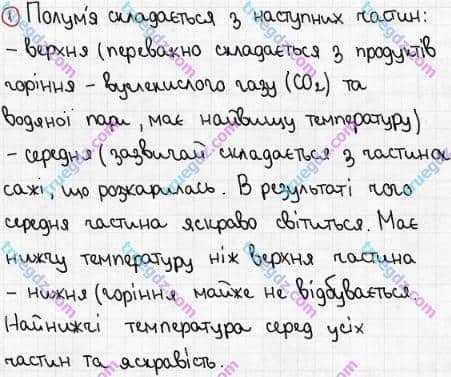 ① Полум'я складається з наступних частин:
- верхня (переважно складається з продуктів
горіння - вуглекислого газу (CO₂) та
водяної пари, має найвищу температуру)
- середня (зазвичай складається з частинок
сажі, що розжарилась. В результаті чого
середня частина яскраво світиться. Має
нижчу температуру ніж верхня частина
- нижня (горіння майже не відбувається
Найнижчі температура серед усіх
частин та яскравість.
truegdz.com